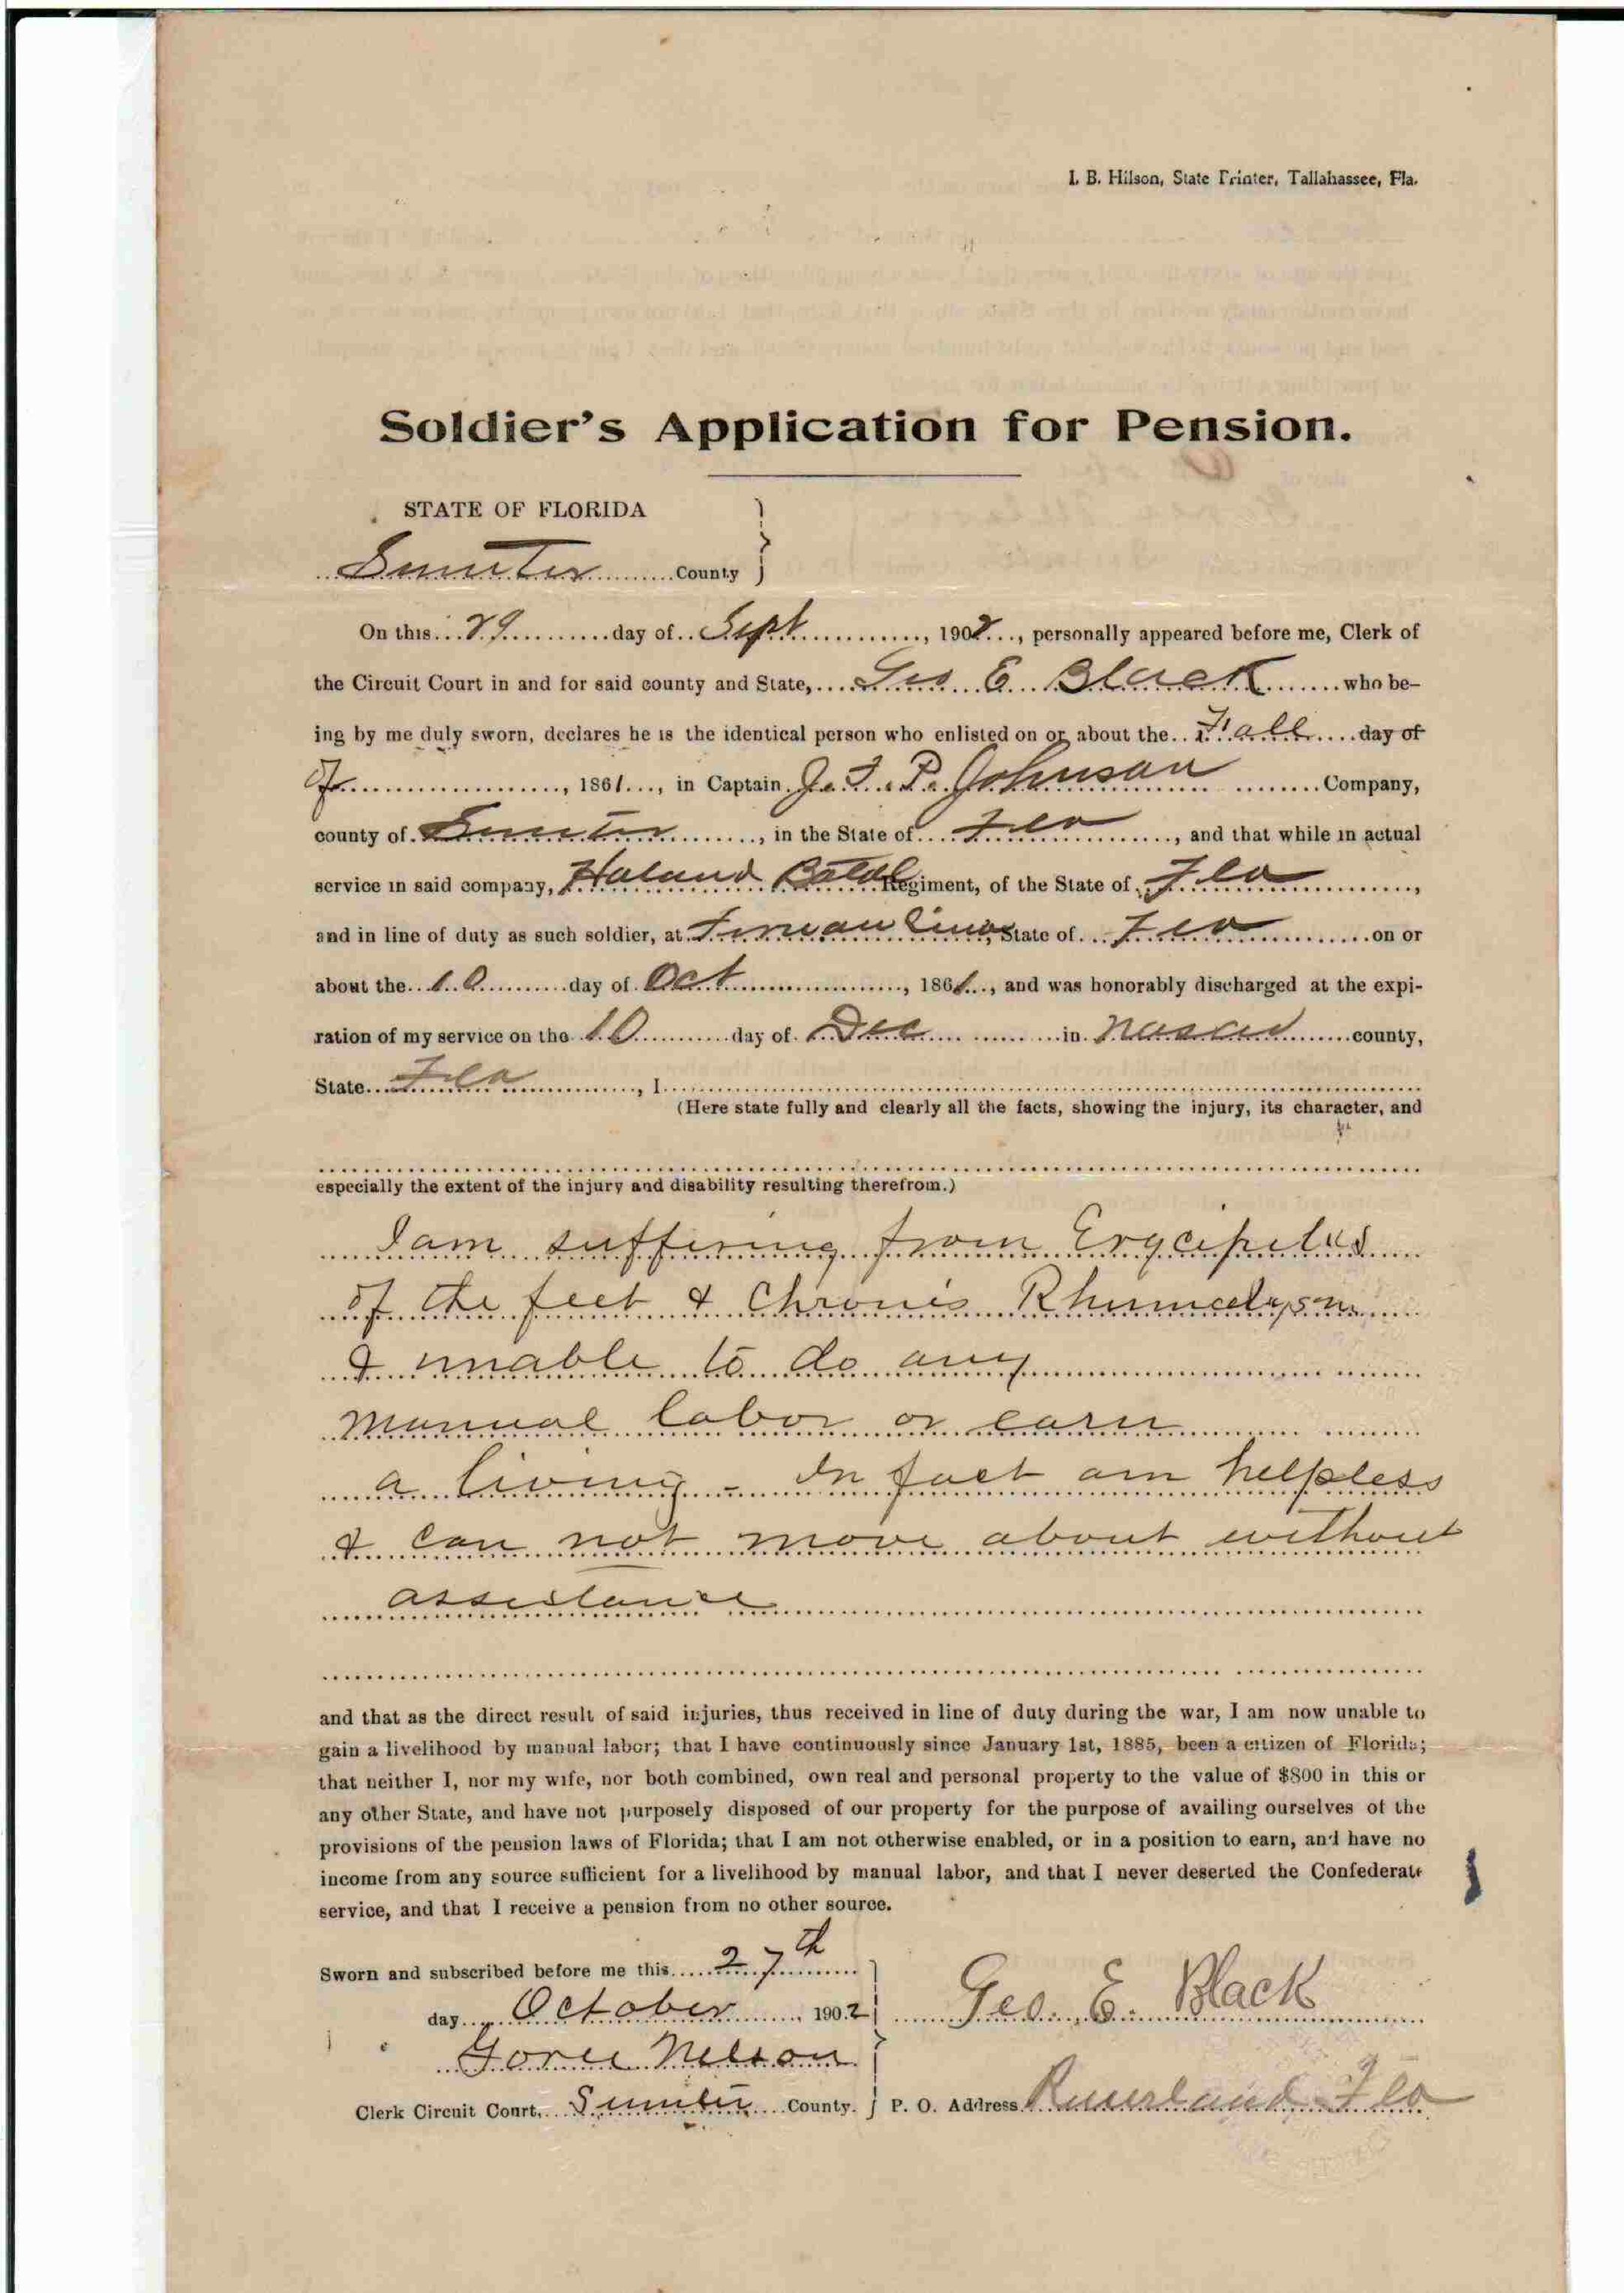 I. B. Hilson, State Printer, Tallahassee, Fla.
Soldier's Application for Pension.
STATE OF FLORIDA
Sumter County
On this 29 day of Sept, 1902, personally appeared before me, Clerk of
the Circuit Court in and for said county and State, Geo E Black who be-
ing by me duly sworn, declares he is the identical person who enlisted on or about the Fall day of
of, 1861, in Captain J. T. P. Johnson Company,
county of Sumter, in the State of Fla, and that while in actual
service in said company, Regiment, of the State of Fla,
and in line of duty as such soldier, at State of Fla on or
about the 10 day of Oct, 1861, and was honorably discharged at the expi-
ration of my service on the 10 day of Dec in Nassau county,
State Fla, I
(Here state fully and clearly all the facts, showing the injury, its character, and
especially the extent of the injury and disability resulting therefrom.)
I am suffering from Erycipelus
of the feet & Chronic
& unable to do any
manual labor or earn
a living - In fact am helpless
& can not move about without
assistance
and that as the direct result of said injuries, thus received in line of duty during the war, I am now unable to
gain a livelihood by manual labor; that I have continuously since January 1st, 1885, been a citizen of Florida;
that neither I, nor my wife, nor both combined, own real and personal property to the value of $800 in this or
any other State, and have not purposely disposed of our property for the purpose of availing ourselves of the
provisions of the pension laws of Florida; that I am not otherwise enabled, or in a position to earn, and have no
income from any source sufficient for a livelihood by manual labor, and that I never deserted the Confederate
service, and that I receive a pension from no other source.
Sworn and subscribed before me this 27th
day October, 1902
Geo. E. Black
Nelson
Clerk Circuit Court, Sumter County.
P. O. Address Fla